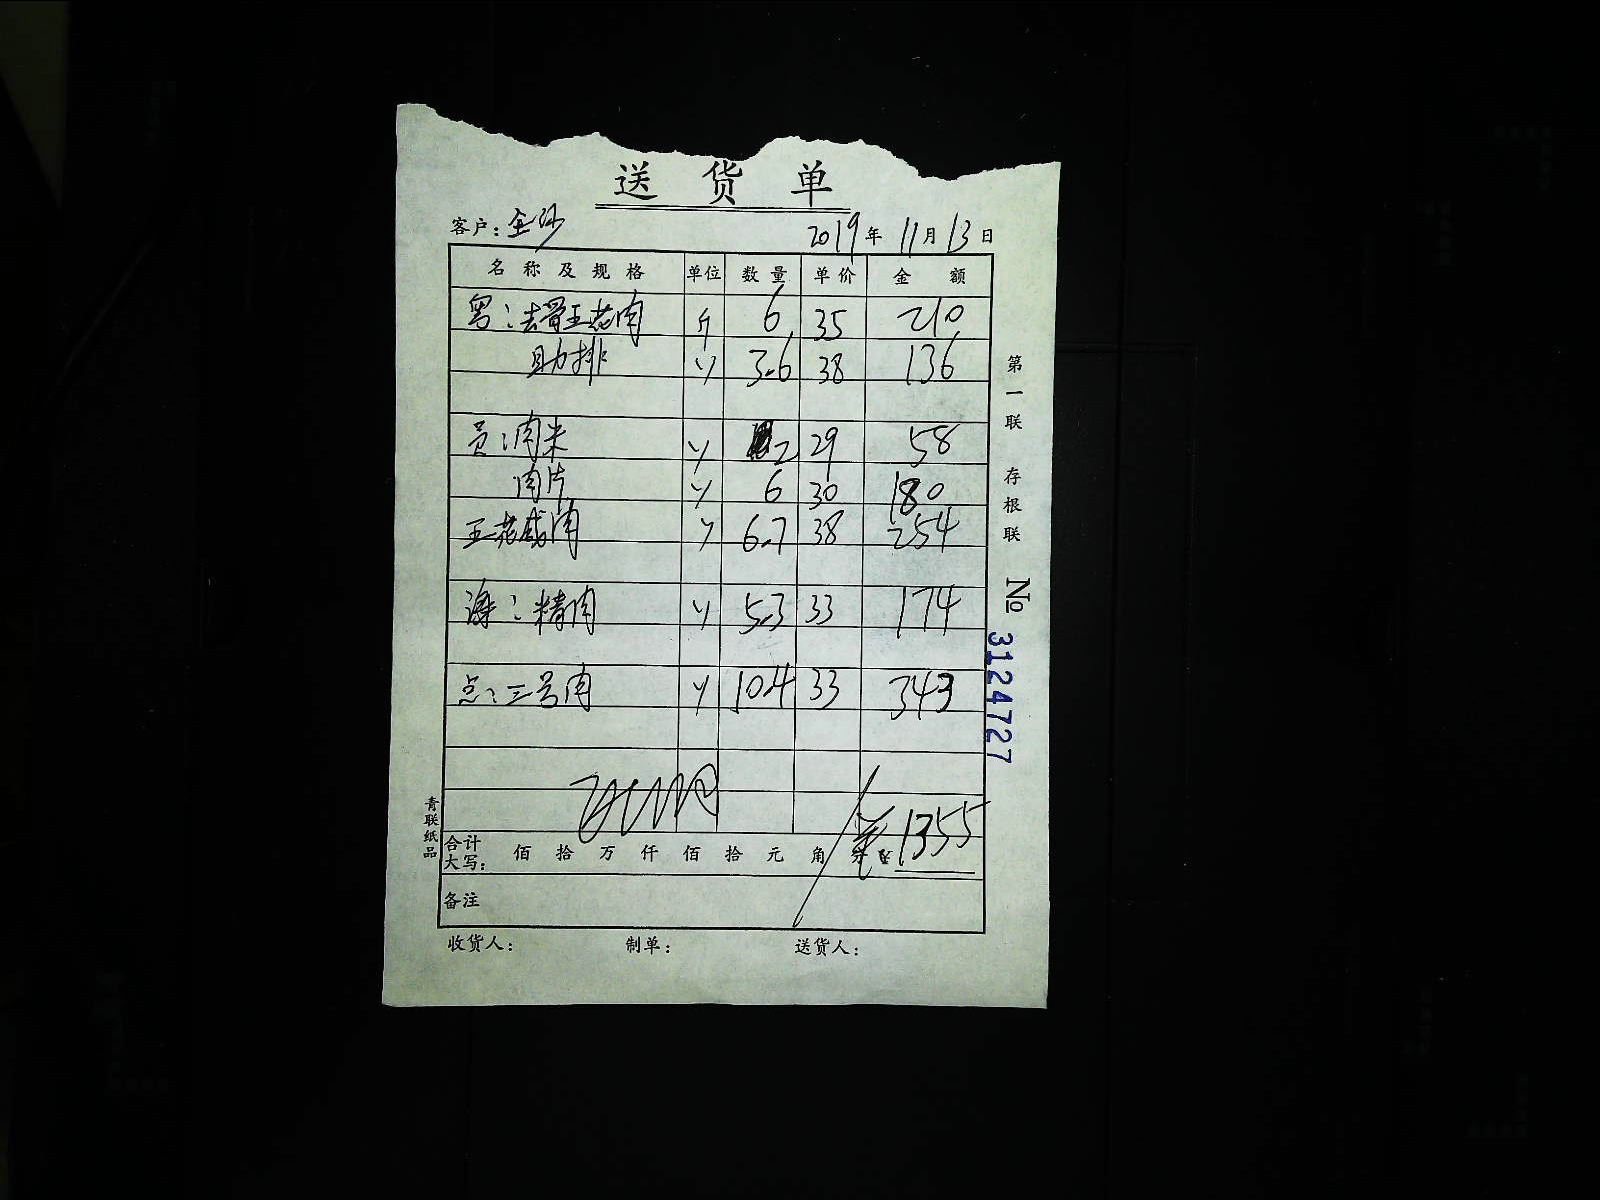 送货单
客户：全珍 2019年11月13日
名称及规格 单位 数量 单价 金额
粤：去骨五花肉 斤 6 35 210
助排 〃 3.6 38 136
员：肉米 〃 2 29 58
肉片 〃 6 30 180
五花咸肉 〃 6.7 38 254
海：精肉 〃 5.3 33 174
点：三号肉 〃 10.4 33 343
合计大写： 佰 拾 万 仟 佰 拾 元 角 分 ¥ 1355
备注
收货人： 制单： 送货人：
第一联 存根联
№ 3124727
青联纸品